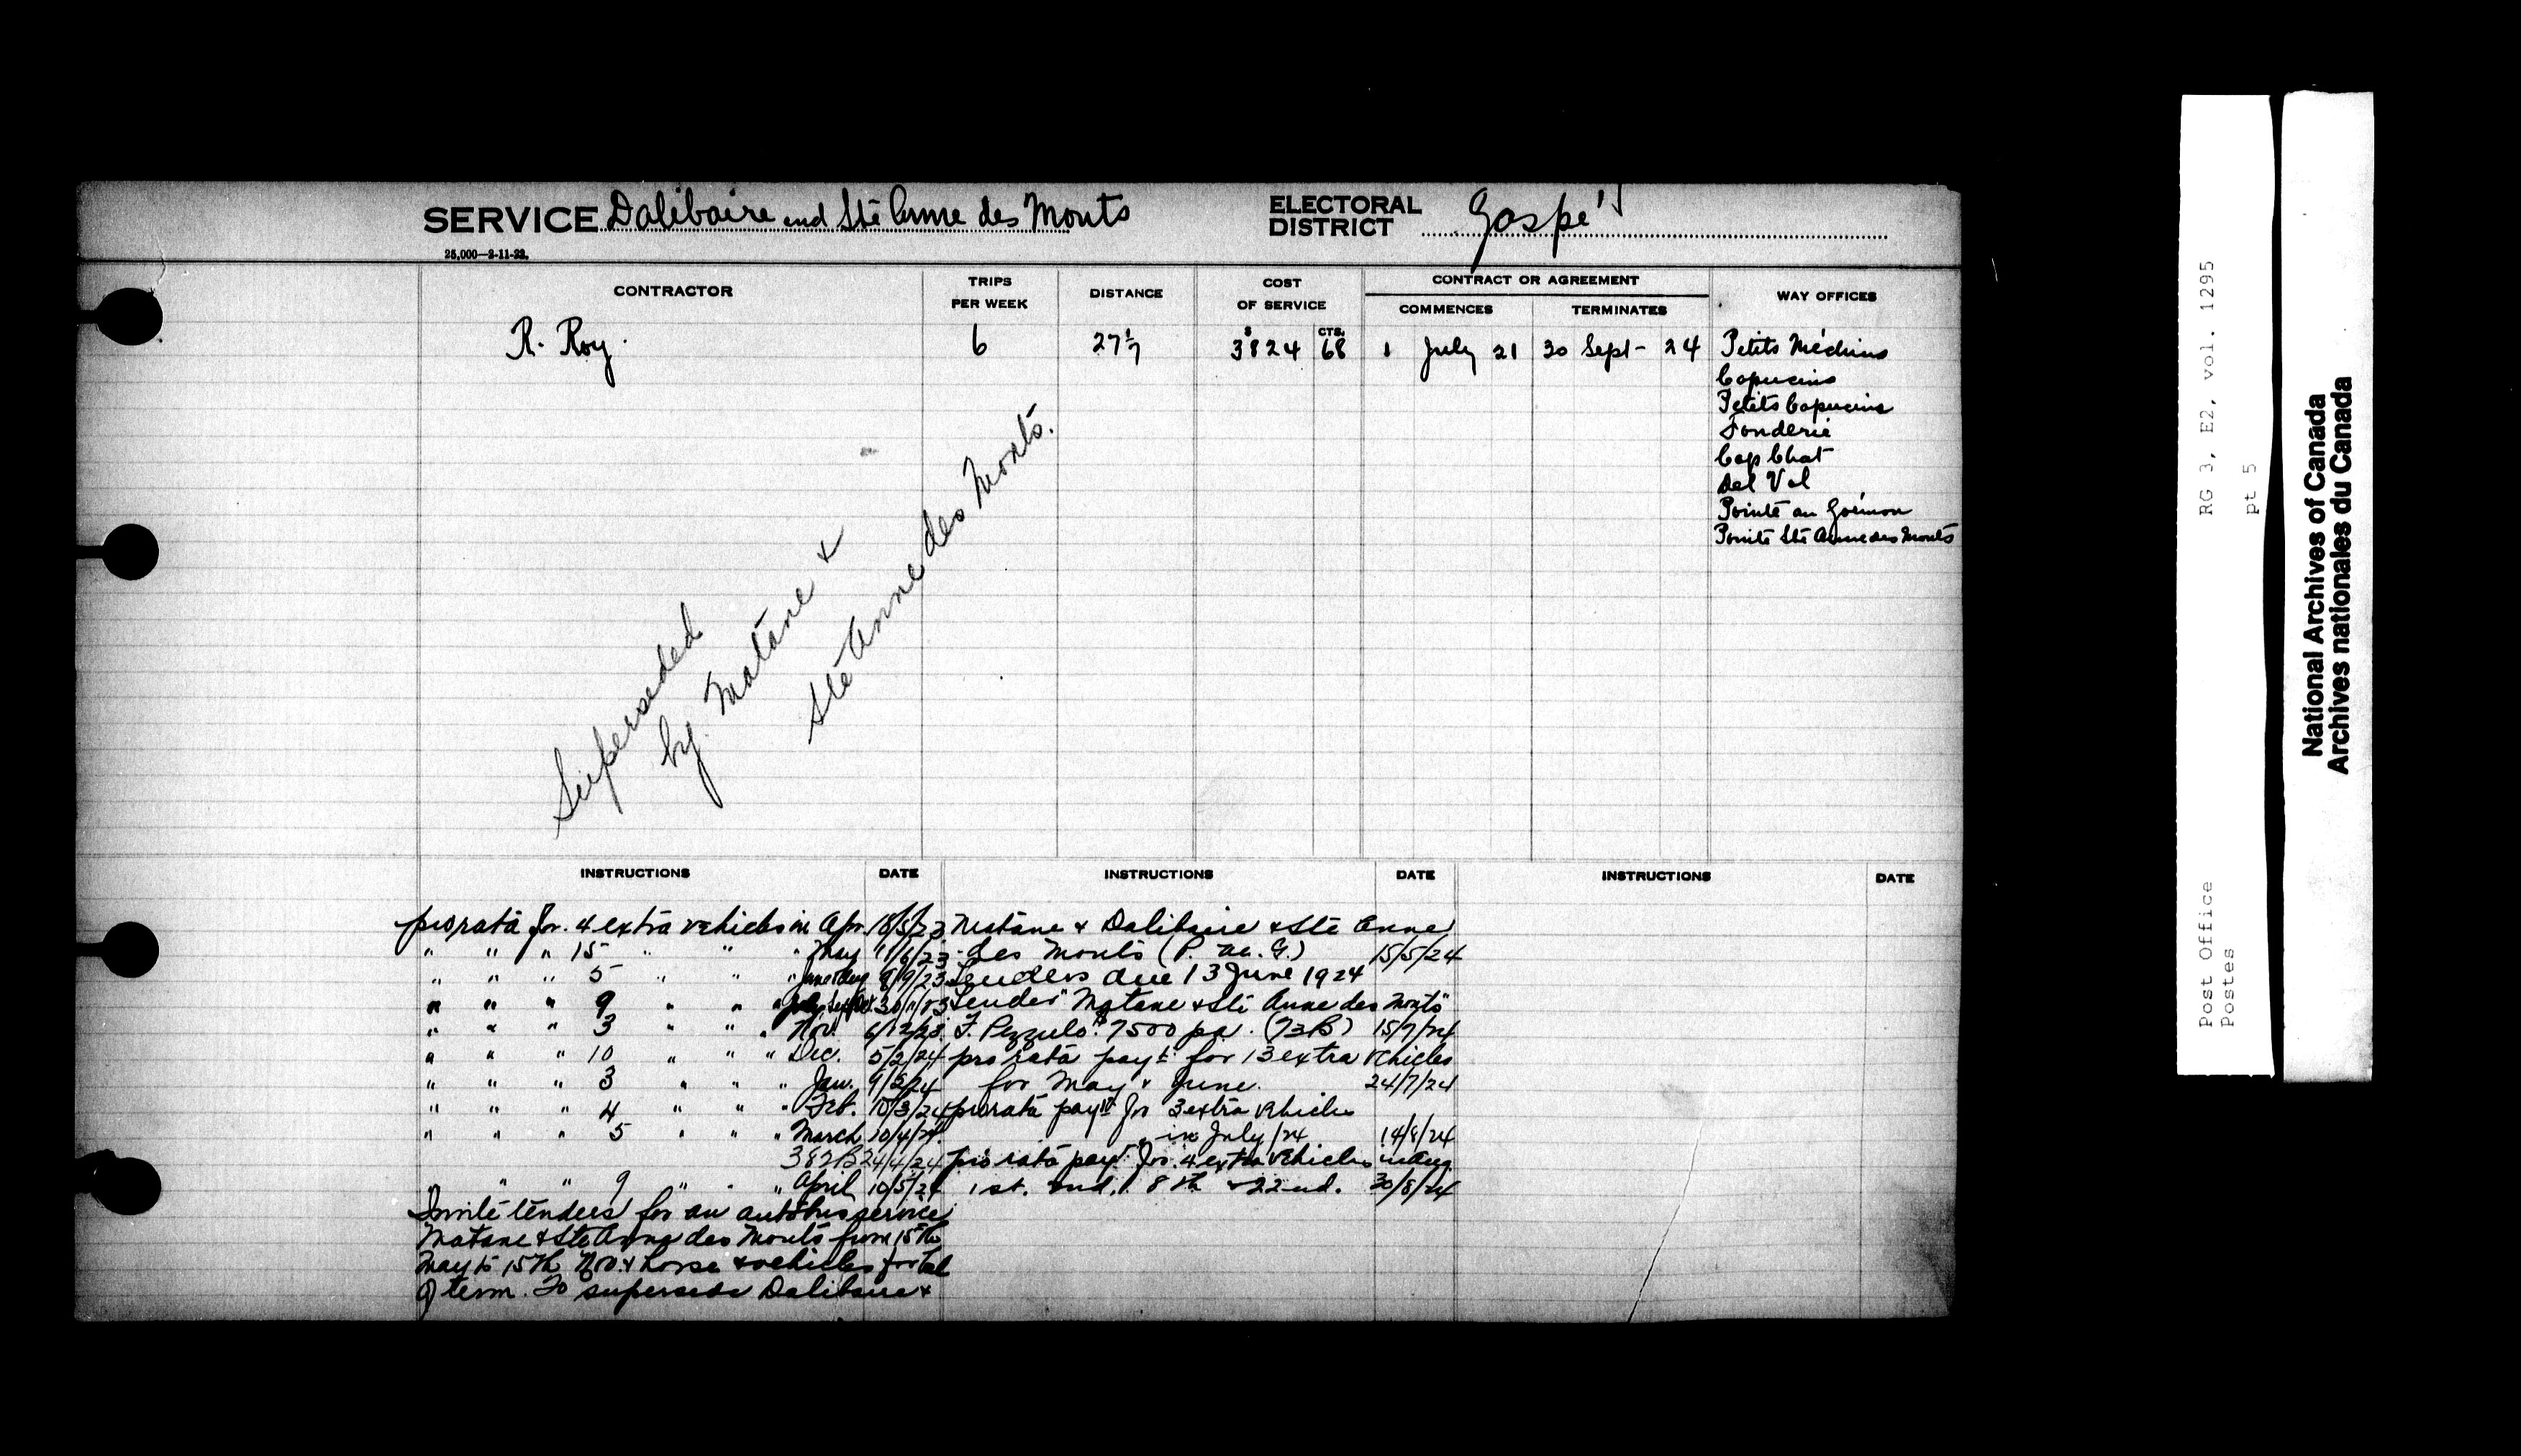 SERVICE Dalibaire and Ste Anne des Monts
ELECTORAL DISTRICT Gaspé
25,000—2-11-22.
CONTRACTOR
TRIPS PER WEEK
DISTANCE
COST OF SERVICE
CONTRACT OR AGREEMENT
COMMENCES
TERMINATES
WAY OFFICES
$ CTS.
R. Roy. 6 27 1/7 3824 68 1 July 21 30 Sept- 24 Petits Méchins
Capucins
Petits Capucins
Fonderie
Cap Chat
Dal Val
Pointe au Goémon
Pointe Ste Anne des Monts
Superseded
by Matane &
Ste Anne des Monts.
INSTRUCTIONS DATE INSTRUCTIONS DATE INSTRUCTIONS DATE
prorata for 4 extra vehicles in Apr. 18/5/23
" " " 15 " " " May 11/6/23
" " " 5 " " " June & Aug 8/9/23
" " " 9 " " " July, Sept, Oct. 30/11/23
" " " 3 " " " Nov. 6/12/23
" " " 10 " " " Dec. 5/2/24
" " " 3 " " " Jan. 9/2/24
" " " 4 " " " Feb. 10/3/24
" " " 5 " " " March 10/4/24
382B 24/4/24
" " " 9 " " " April 10/5/24
Invite tenders for an autobus service
Matane & Ste Anne des Monts from 15th
May to 15th Nov. & horse & vehicles for bal
of term. To supersede Dalibaire &
Matane & Dalibaire & Ste Anne
des Monts (P. M. G.) 15/5/24
Tenders due 13 June 1924
Tender "Matane & Ste Anne des Monts"
F. Pezzulo. $7500 pa. (73B) 15/7/24
pro rata payt for 13 extra vehicles
for May & June. 24/7/24
prorata payt for 3 extra vehicles
in July /24 14/8/24
pro rata payt for 4 extra vehicles in Aug
1st. 2nd. 8th & 22nd. 30/8/24
RG 3, E2, vol. 1295
pt 5
Post Office
Postes
National Archives of Canada
Archives nationales du Canada